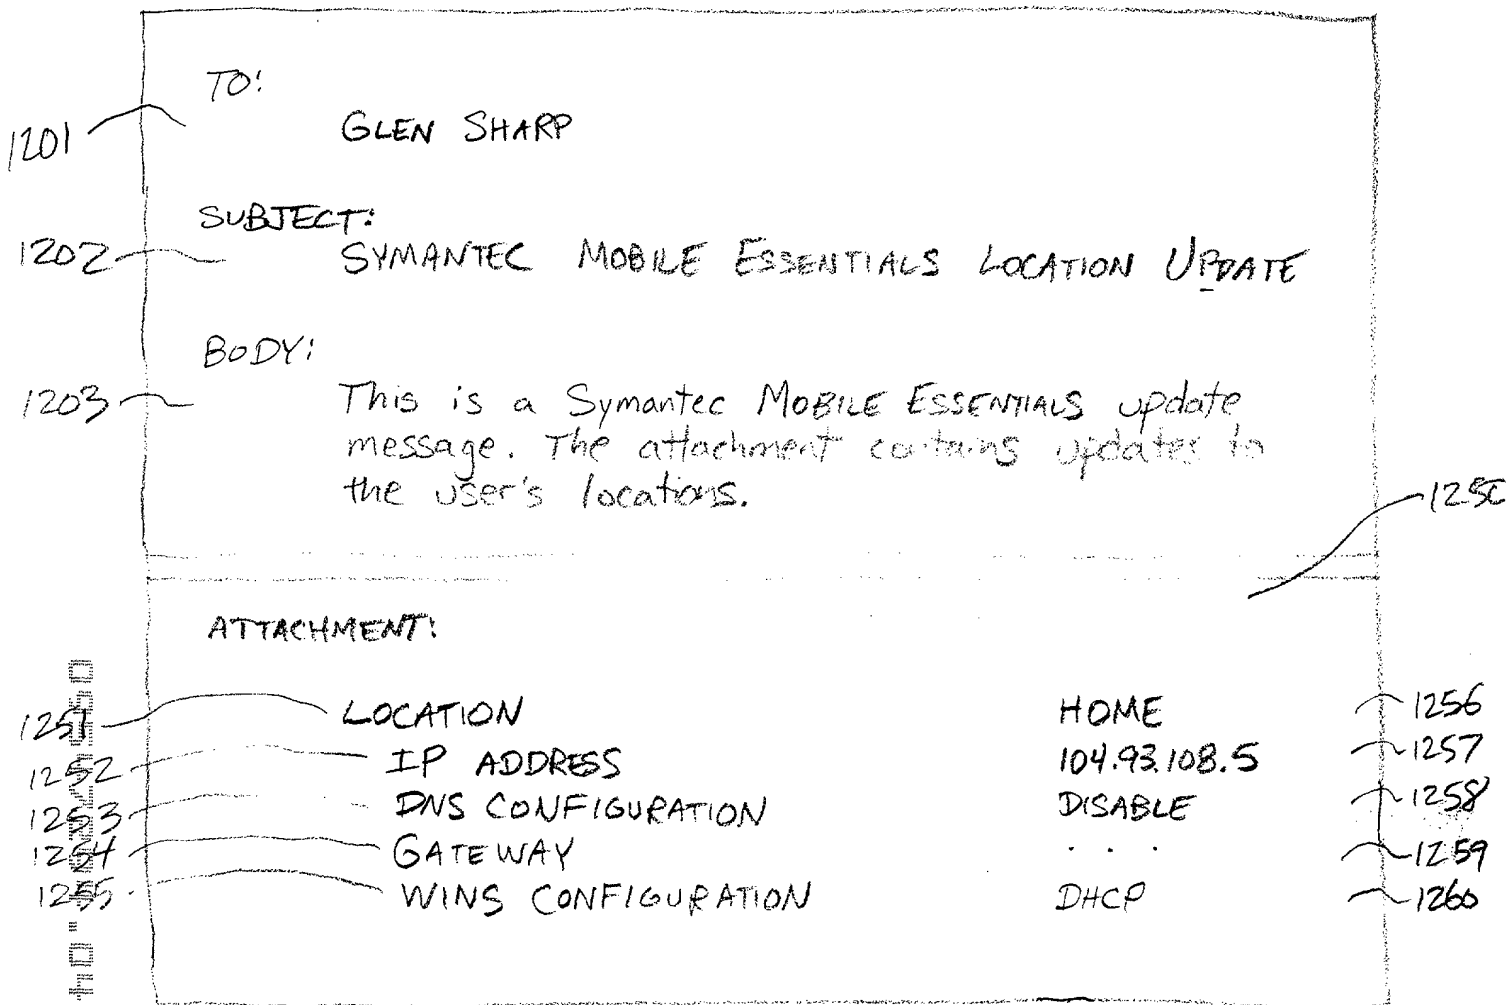 TO:
1201 GLEN SHARP
SUBJECT:
1202 SYMANTEC MOBILE ESSENTIALS LOCATION UPDATE
BODY:
1203 This is a Symantec MOBILE ESSENTIALS update
message. The attachment contains updates to
the user's locations.
1250
ATTACHMENT:
1251 LOCATION HOME 1256
1252 IP ADDRESS 104.93.108.5 1257
1253 DNS CONFIGURATION DISABLE 1258
1254 GATEWAY . . . 1259
1255 WINS CONFIGURATION DHCP 1260